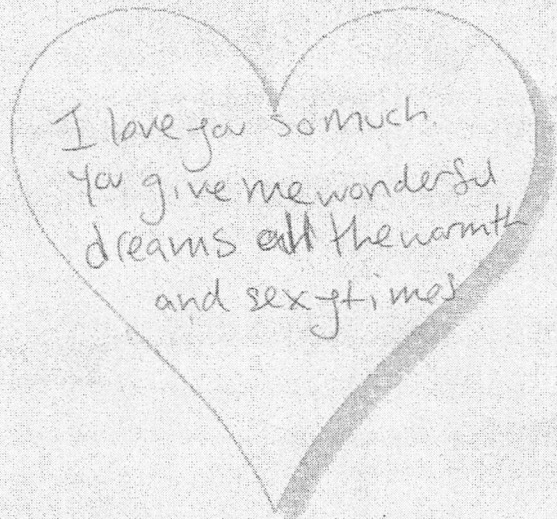 I love you so much.
you give me wonderful
dreams all the warmth
and sexytimes